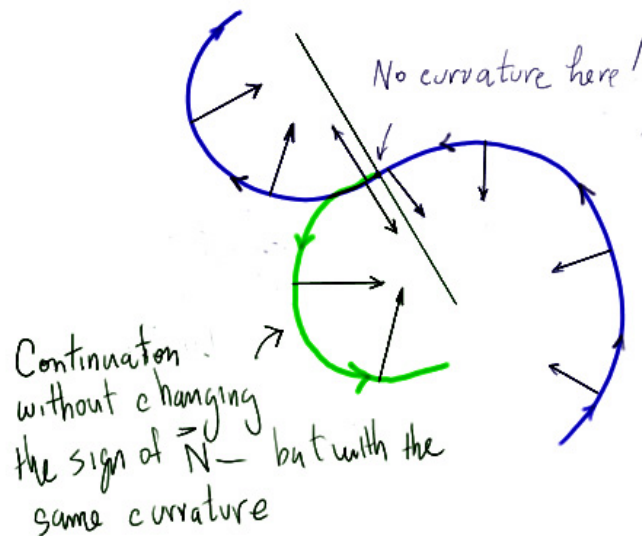 No curvature here!
Continuation
without changing
the sign of N — but with the
same curvature